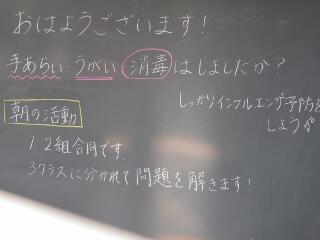 おはようございます!
手あらい・うがい・消毒はしましたか?
しっかりインフルエンザ予防を
しようぜ
朝の活動
1.2組合同です.
3クラスに分かれて問題を解きます!